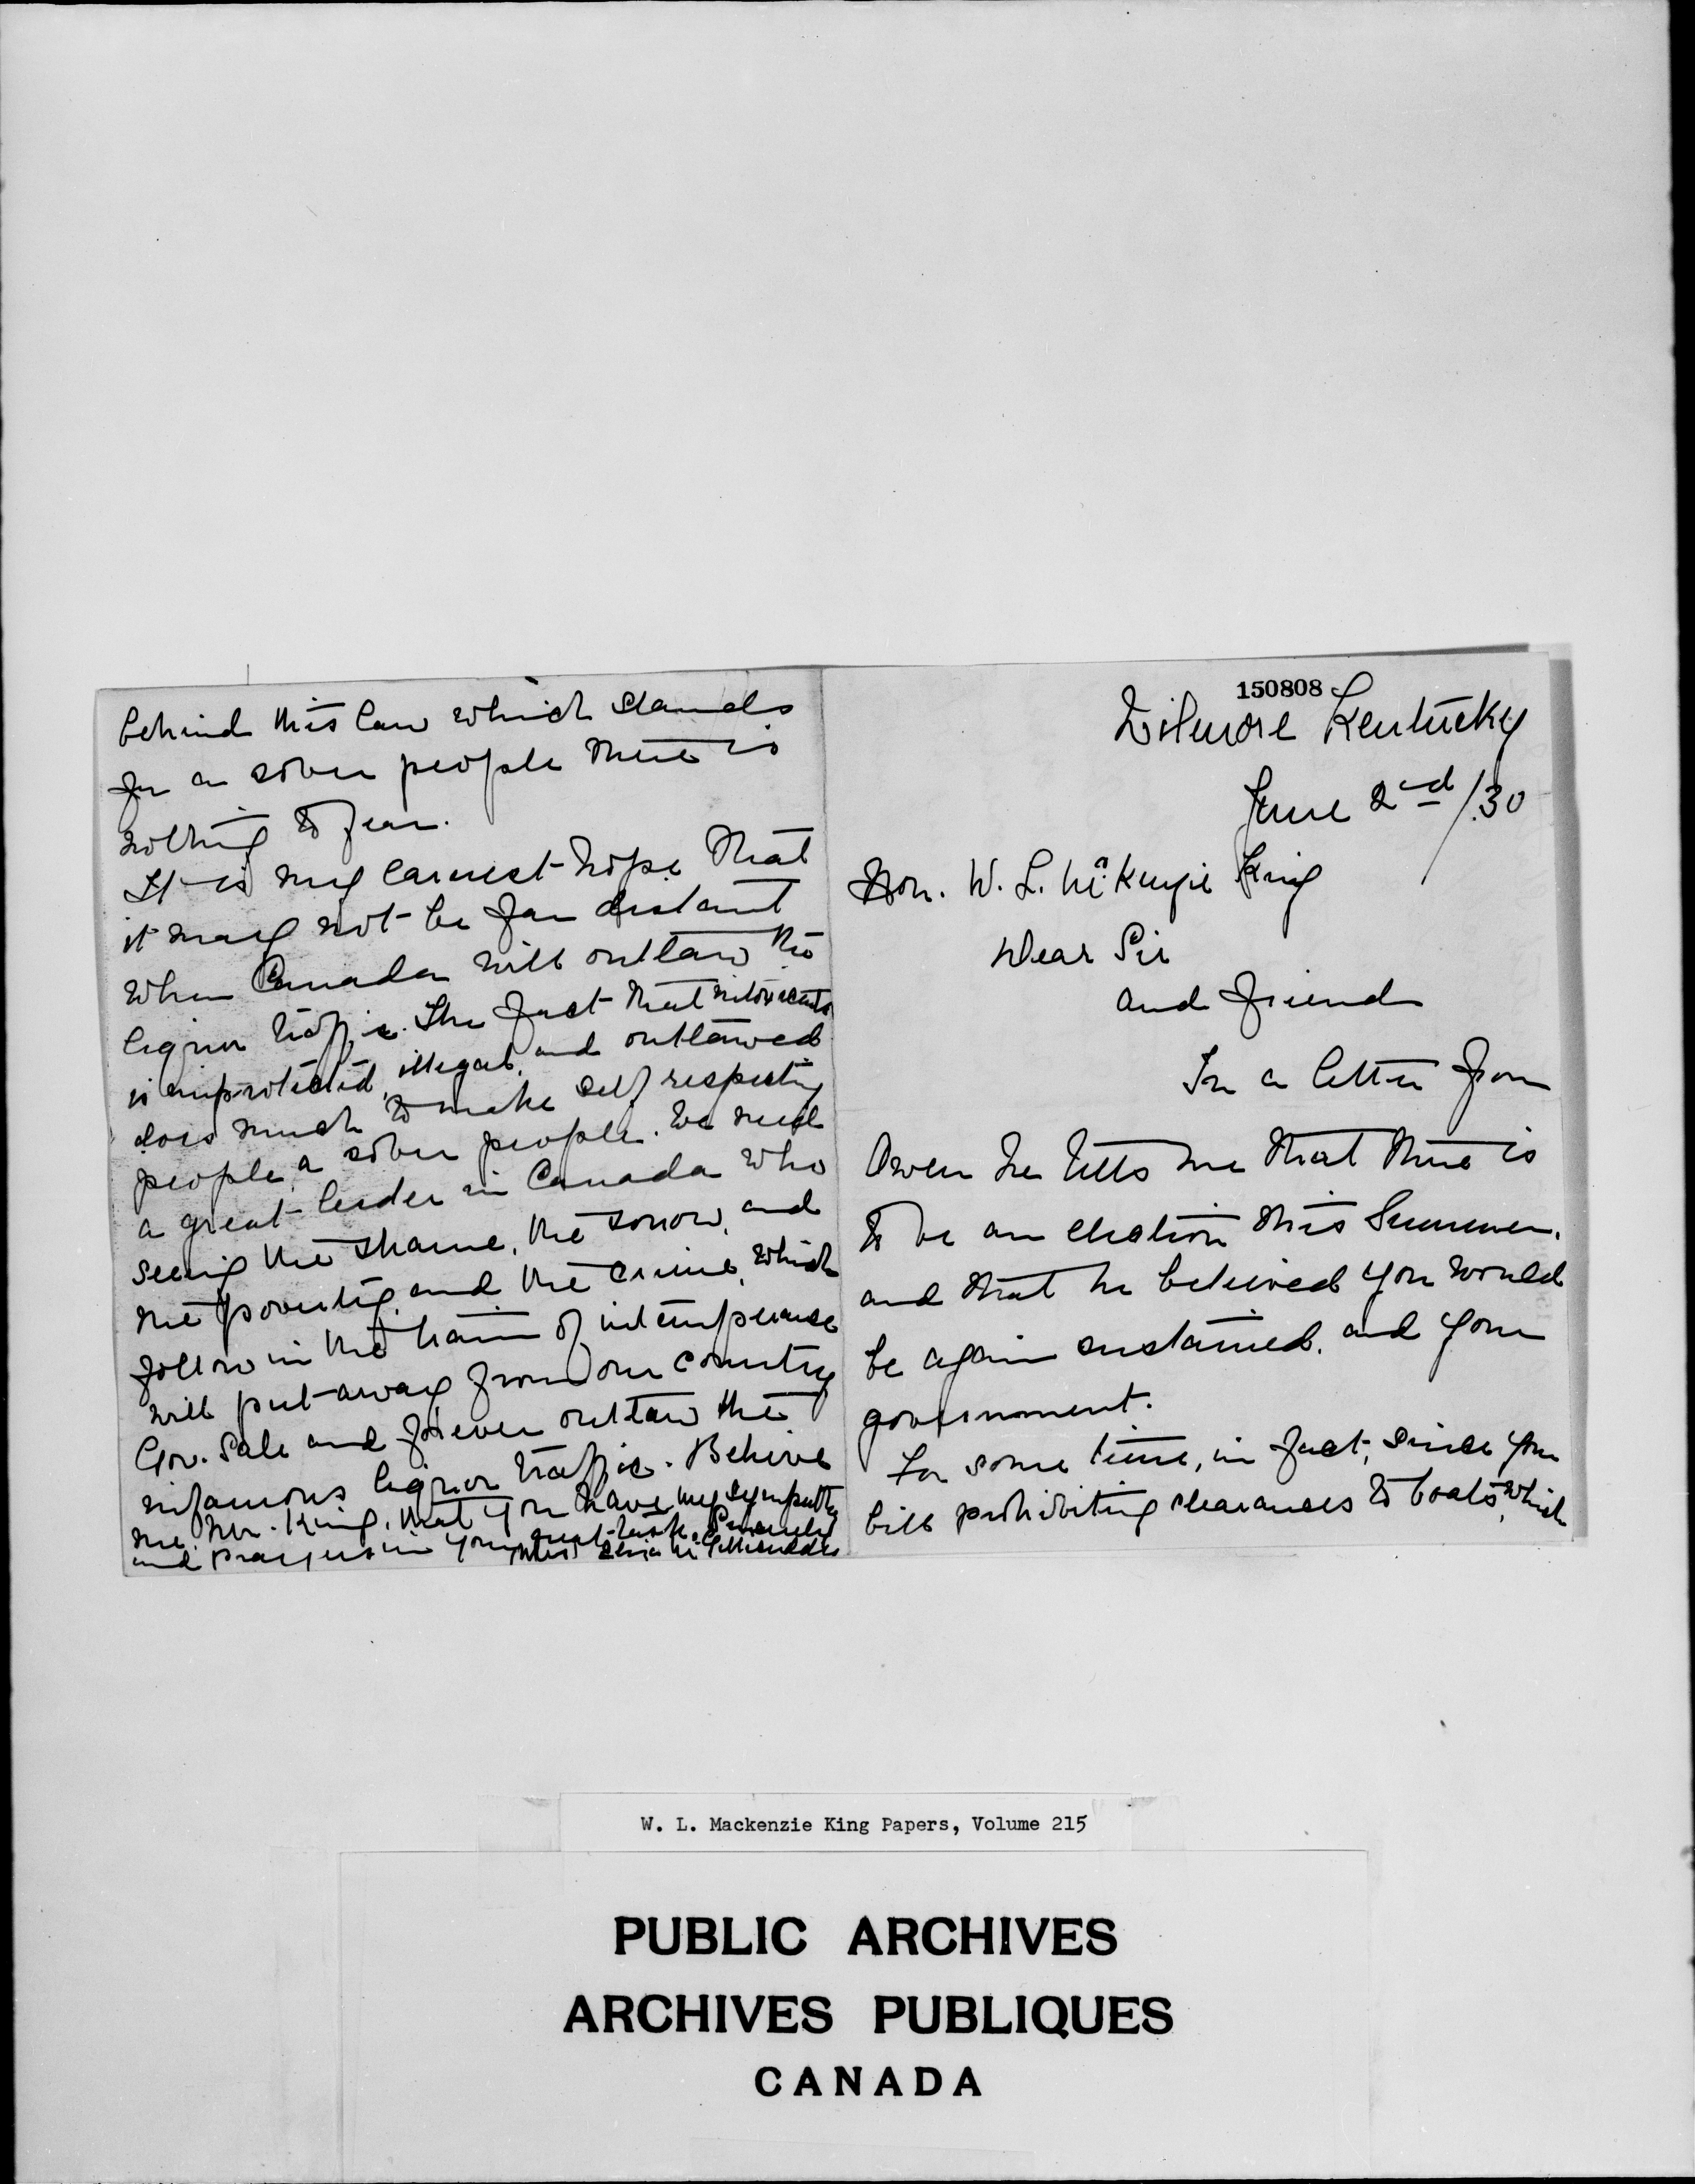 behind this law which stands
for a sober people there is
nothing to fear.
It is my earnest hope that
it may not be far distant
when Canada will outlaw the
liquor traffic. The fact that intoxicants
is unprotected, illegal, and outlawed
does much to make self respecting
people, a sober people. We need
a great leader in Canada who
seeing the shame, the sorrow, and
the poverty, and the crime, which
follow in the train of intemperance
will put away from our country
Gov. Sale and forever outlaw the
infamous liquor traffic. Believe
me, Mr. King, that you have my sympathy
and prayers in your great task. Sincerely
150808
Wilmore Kentucky
June 2nd/30
Hon. W. L. McKenzie King
Dear Sir
and friend
In a letter from
Owen he tells me that there is
to be an election this Summer.
and that he believed you would
be again sustained, and your
government.
For some time, in fact, since your
bill prohibiting clearances to boats, which
W. L. Mackenzie King Papers, Volume 215
PUBLIC ARCHIVES
ARCHIVES PUBLIQUES
CANADA